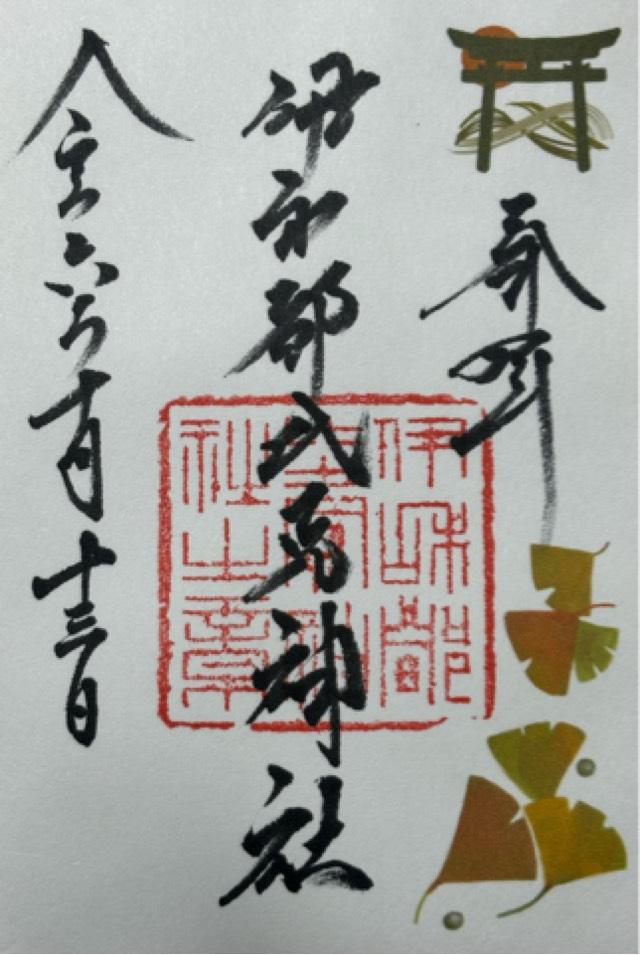 奉拝
伊和都比売神社
令和六年十月十三日
伊和都
比賣神
社之章